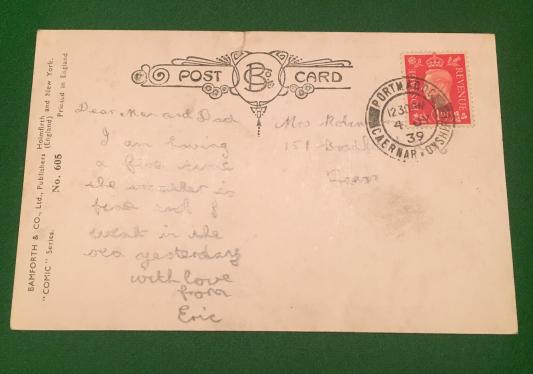 BAMFORTH & CO., Ltd., Publishers Holmfirth
(England) and New York.
"COMIC" Series.
No. 605
Printed in England
POST CARD
REVENUE
PORTMADOC
12 30 PM
39
CAERNARVONSHIRE
Dear Mam and Dad
I am having
a fine time
the weather is
fine and I
went in the
sea yesterday
with love
from
Eric
Mrs
151